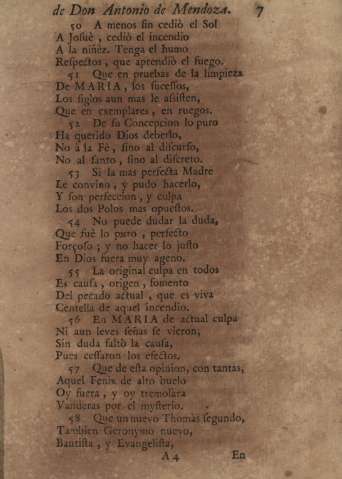 de Don Antonio de Mendoza. 7
50 A menos sin cediò el Sol
A Josuè, cediò el incendio
A la niñèz. Tenga el humo
Respectos, que aprendiò el fuego.
51 Que en pruebas de la limpieza
De MARIA, los sucessos,
Los siglos aun mas le assisten,
Que en exemplares, en ruegos.
52 De su Concepcion lo puro
Ha querido Dios deberlo,
No à la Fè, sino al discurso,
No al santo, sino al discreto.
53 Si la mas perfecta Madre
Le convino, y pudo hacerlo,
Y son perfeccion, y culpa
Los dos Polos mas opuestos.
54 No puede dudar la duda,
Que fuè lo puro, perfecto
Forçoso; y no hacer lo justo
En Dios fuera muy ageno.
55 La original culpa en todos
Es causa, origen, fomento
Del pecado actual, que es viva
Centella de aquel incendio.
56 En MARIA de actual culpa
Ni aun leves señas se vieron,
Sin duda faltò la causa,
Pues cessaron los efectos.
57 Que de esta opinion, con tantas,
Aquel Fenix de alto buelo
Oy fuera, y oy tremolàra
Vanderas por el mysterio.
58 Que un nuevo Thomàs segundo,
Tambien Geronymo nuevo,
Bautista, y Evangelista,
A 4 En